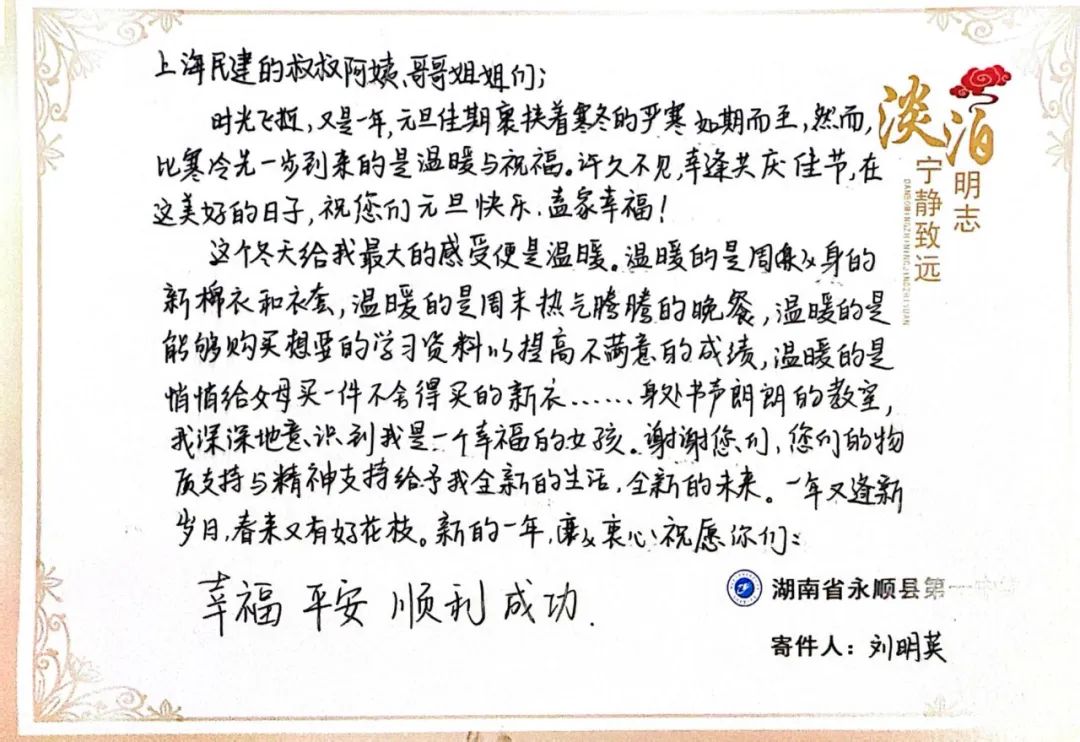 上海民建的叔叔阿姨、哥哥姐姐们:
时光飞逝,又是一年,元旦佳期裹挟着寒冬的严寒如期而至,然而,
比寒冷先一步到来的是温暖与祝福。许久不见,幸逢共庆佳节,在
这美好的日子,祝您们元旦快乐、阖家幸福!
这个冬天给我最大的感受便是温暖。温暖的是周身的
新棉衣和衣套,温暖的是周末热气腾腾的晚餐,温暖的是
能够购买想要的学习资料以提高不满意的成绩,温暖的是
悄悄给父母买一件不舍得买的新衣……身处书声朗朗的教室,
我深深地意识到我是一个幸福的女孩。谢谢您们,您们的物
质支持与精神支持给予我全新的生活,全新的未来。一年又逢新
岁日,春来又有好花枝。新的一年,衷心祝愿你们:
幸福 平安 顺利 成功.
淡泊
明志
宁静致远
DANBOMINGZHININGJINGZHIYUAN
湖南省永顺县第一
寄件人:刘明英